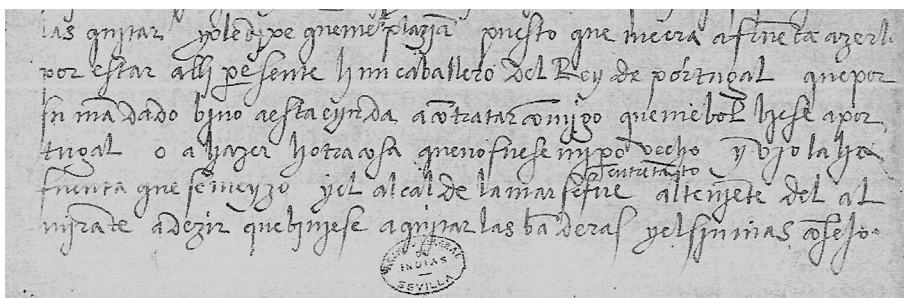 las quitar yo le dixe que me plazia puesto que me era afruenta azerlo
por estar alli presente hun caballero del Rey de portugal que por
su mādado bino a esta ciudad a cōtratar cōmigo que me bolbiese a por
tugal o a hazer hotra cosa que no fuese mi probecho y vio la ha
fruenta que se me yzo entretāto
y el alcalde la mar se fue al teniente del al
mirāte a dezir que biniese a quitar las bāderas y el sin mas cōsejo
ARCHIVO GENERAL
DE
INDIAS
SEVILLA